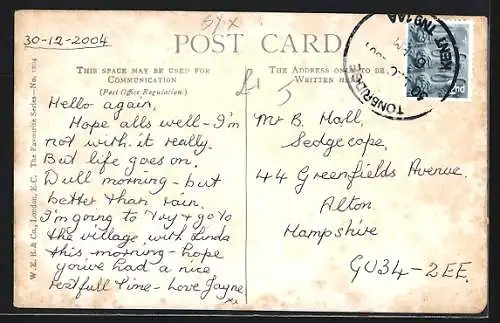 30-12-2004
POST CARD
THIS SPACE MAY BE USED FOR
COMMUNICATION
(Post Office Regulation.)
THE ADDRESS ONLY TO BE
WRITTEN
W. E. B. & Co., London, E.C. The Favourite Series—No.
Hello again,
Hope alls well - I'm
not with it really.
But life goes on.
Dull morning - but
better than rain.
I'm going to try & go to
the village with Linda
this morning - hope
you've had a nice
restfull time - Love Jayne
Mr B. Hall,
Sedgecope,
44 Greenfields Avenue.
Alton
Hampshire
GU34-2EE.
TONBRIDGE
KENT TN9 1AA
2nd